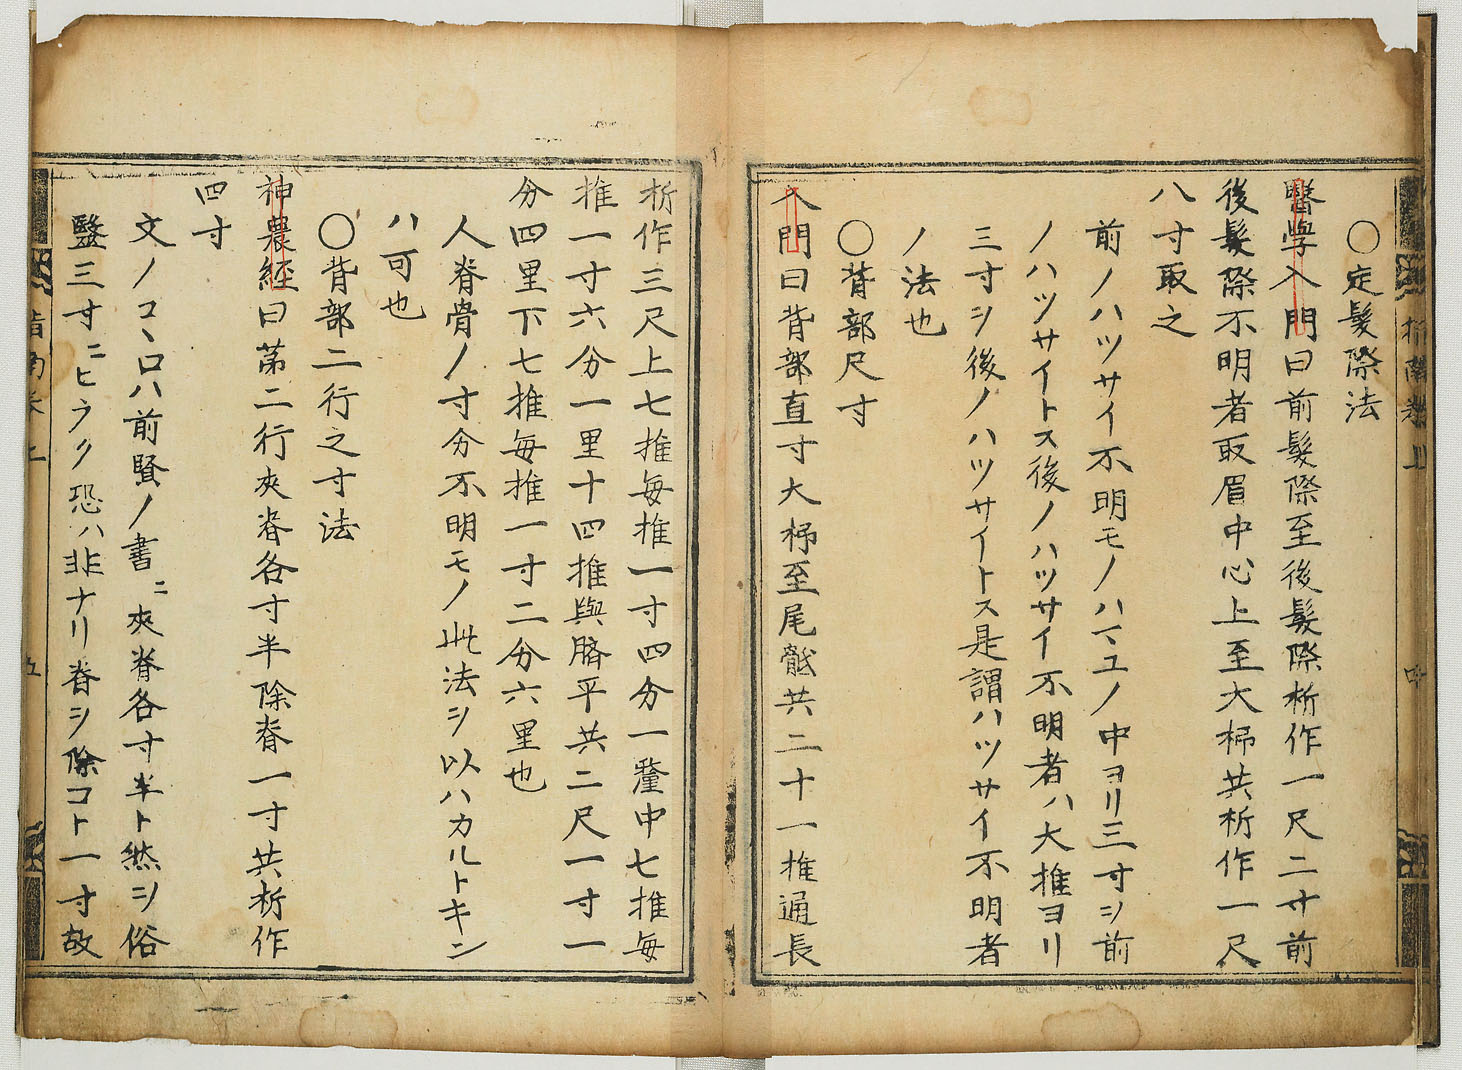 〇定髮際法
醫學入門曰前髮際至後髮際析作一尺二寸前
後髮際不明者取眉中心上至大杼共析作一尺
八寸取之
前ノハツサイ不明モノハマユノ中ヨリ三寸シ前
ノハツサイトス後ノハツサイ不明者ハ大推ヨリ
三寸シ後ノハツサイトス是謂ハツサイ不明者
ノ法也
〇背部尺寸
入門曰背部直寸大杼至尾骶共二十一推通長
析作三尺上七推每推一寸四分一釐中七推每
推一寸六分一里十四推與臍平共二尺一寸一
分四里下七推每推一寸二分六里也
人脊骨ノ寸分不明モノ此法シ以ハカルトキン
ハ可也
〇背部二行之寸法
神農經曰第二行夾脊各寸半除脊一寸共析作
四寸
文ノコヽロハ前賢ノ書ニ夾脊各寸半ト然シ俗
醫三寸ニヒラク恐ハ非ナリ脊シ除コト一寸故